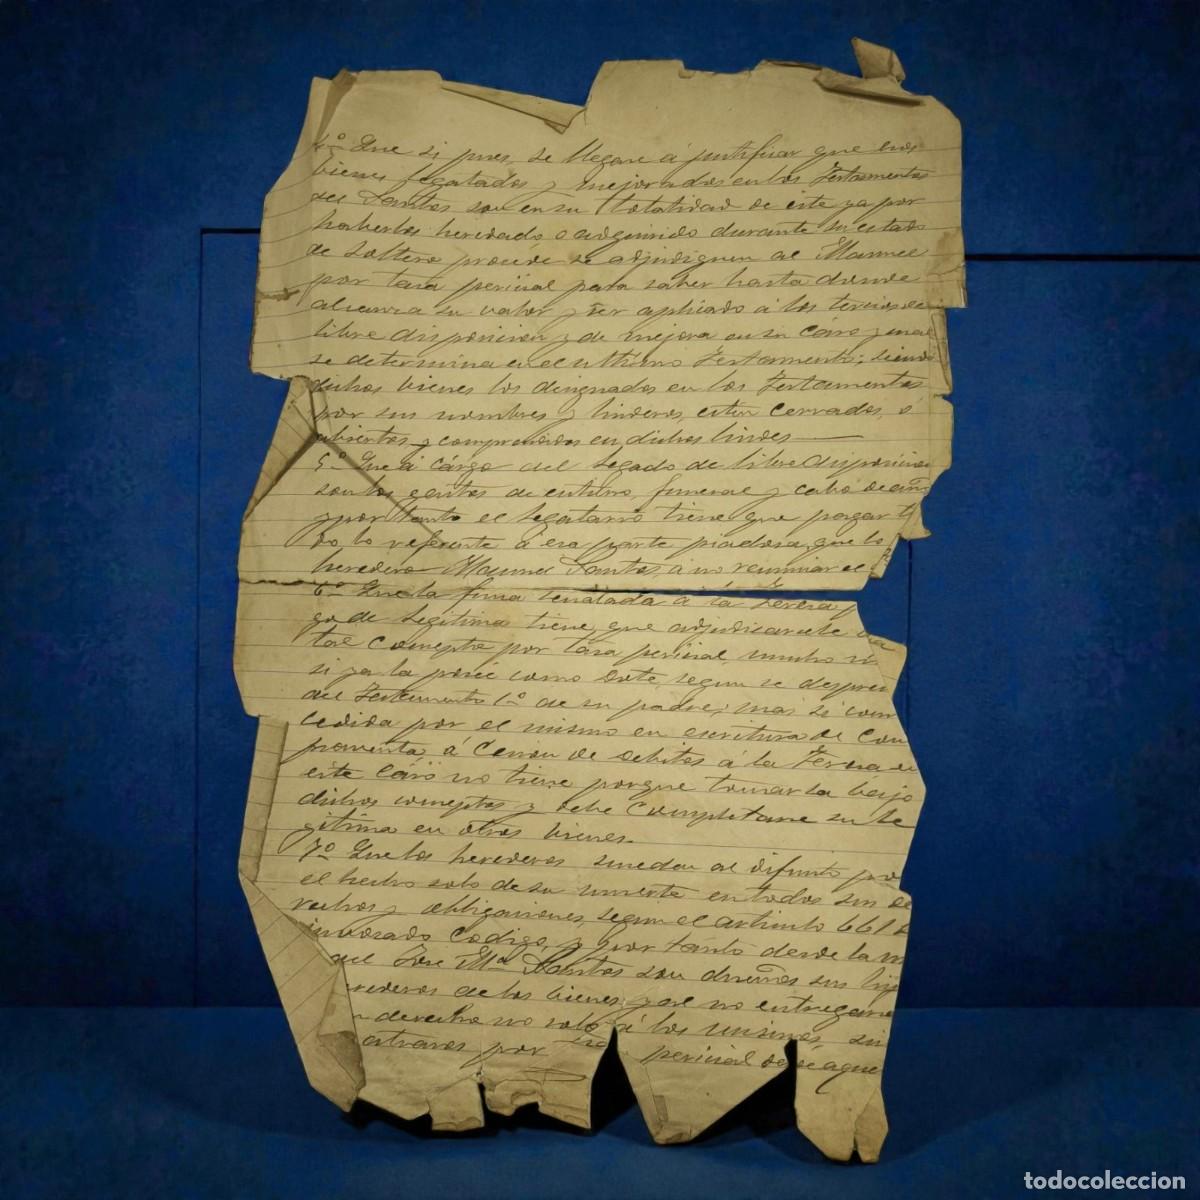 4º Que si pues, se llegare á justificar que esos
bienes legatados y mejorados en los Testamentos
del Santos son en su totalidad de este ya por
haberlos heredado o adquirido durante su estado
de soltero procede se adjudiquen al Manuel
por tasa pericial para saber hasta donde
alcanza su valor y ser aplicado á los tercios de
libre disposicion y de mejora en su caso y cual
se determina en el ultimo Testamento; siendo
dichos bienes los designados en los Testamentos
por sus nombres y linderos, estén cerrados, ó
abiertos y comprendidos en dichos lindes
5º Que á cárgo del legado de libre disposicion
son los gastos de entierro, funeral y cabo de año
y por tanto el legatario tiene que pagar to
do lo referente á esa parte piadosa, que lo
heredero Manuel Santos, á no renunciar el
6º Que la finca señalada á la Teresa
go de legitima tiene que adjudicarsele
tal concepto por tasa pericial mucho
si ya la poseé como Dote, segun se despren
del Testamento 1º de su padre; mas si con
cedida por el mismo en escritura de Com
praventa á Cesion de debitos á la Teresa en
este cáso no tiene porque tomarla bajo
dichos conceptos y debe completarse su le
gitima en otros bienes.
7º Que los herederos suceden al difunto por
el hecho solo de su muerte en todos sus de
rechos y obligaciones, segun el articulo 661
invocado Codigo, y por tanto desde la m
del José Mª Santos son dueños sus hij
erederos de los bienes y al no entregar
derecho no solo á los mismos, si
atrasos por pericial desde aque
todocoleccion